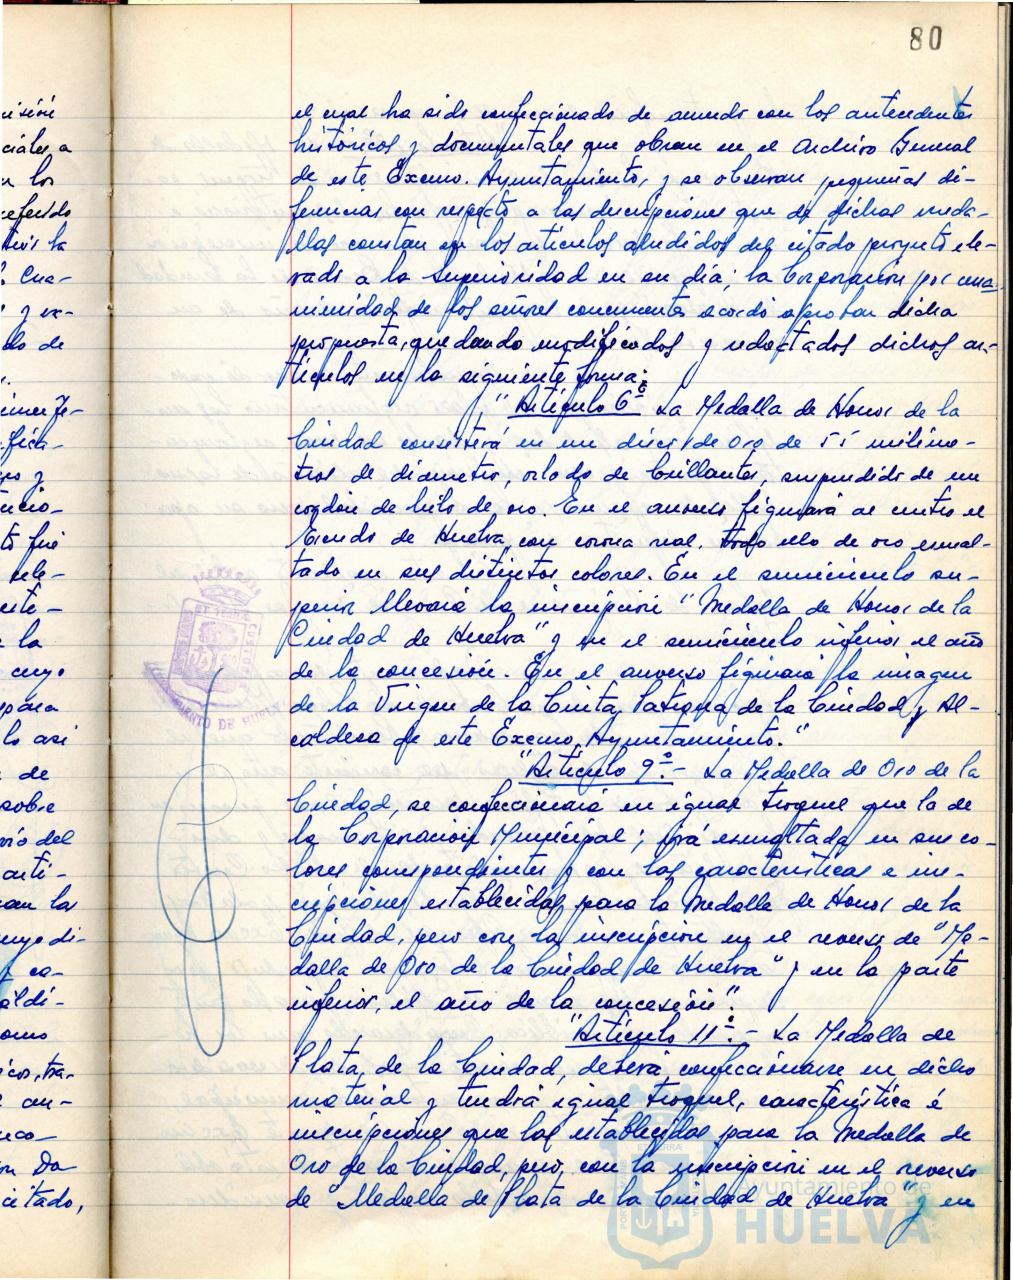 80
el cual ha sido confeccionado de acuerdo con los antecedentes
históricos y documentales que obran en el Archivo General
de este Excmo. Ayuntamiento, y se observan pequeñas di-
ferencias con respecto a las descripciones que de dichas meda-
llas constan en los artículos aludidos del citado proyecto ele-
vado a la Superioridad en su día; la Corporación por una-
nimidad de los señores concurrentes acordó aprobar dicha
propuesta, quedando modificados y redactados dichos ar-
tículos en la siguiente forma:
"Artículo 6º La Medalla de Honor de la
Ciudad consistirá en un disco de oro de 55 milíme-
tros de diámetro, orlado de brillantes, suspendido de un
cordón de hilo de oro. En el anverso figurará al centro el
Escudo de Huelva, con corona real. Todo ello de oro esmal-
tado en sus distintos colores. En el semicírculo su-
perior llevará la inscripción "Medalla de Honor de la
Ciudad de Huelva" y en el semicírculo inferior el año
de la concesión. En el anverso figurará la imagen
de la Virgen de la Cinta, Patrona de la Ciudad y Al-
caldesa de este Excmo. Ayuntamiento."
"Artículo 9º.- La Medalla de Oro de la
Ciudad, se confeccionará en igual troquel que la de
la Corporación Municipal; irá esmaltada en sus co-
lores correspondientes y con las características e ins-
cripciones establecidas para la Medalla de Honor de la
Ciudad, pero con la inscripción en el reverso de "Me-
dalla de Oro de la Ciudad de Huelva" y en la parte
inferior, el año de la concesión".
"Artículo 11º.- La Medalla de
Plata de la Ciudad, deberá confeccionarse en dicho
material y tendrá igual troquel, característica é
inscripciones que las establecidas para la Medalla de
Oro de la Ciudad, pero, con la inscripción en el reverso
de "Medalla de Plata de la Ciudad de Huelva" y en
Ayuntamiento de
HUELVA